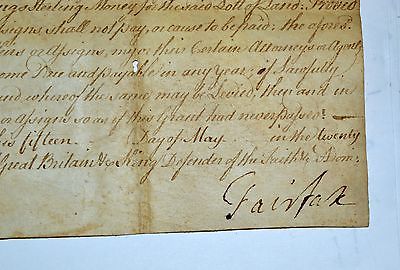 Sterling Money for the said Lott of Land. Provided
ssigns, shall not pay, or cause to be paid; the afores.d
eirs or Assigns, my or their Certain Attorneys or Agent
ome Due and payable in any year; if Lawfully
and whereof the same may be Levied, then and in
or Assigns so as if this Grant had never passed
his fifteen Day of May in the twenty
Great Britain &c King Defender of the Faith &c Dom
Fairfax